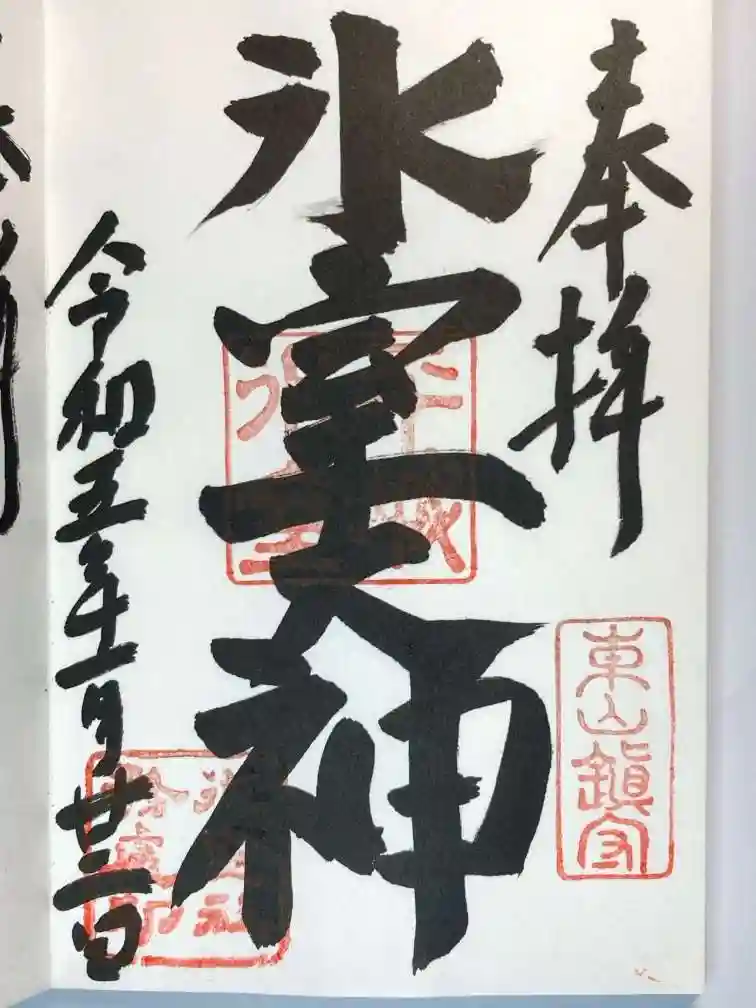 奉拝
東山鎮守
氷室大神
令和五年十一月廿三日